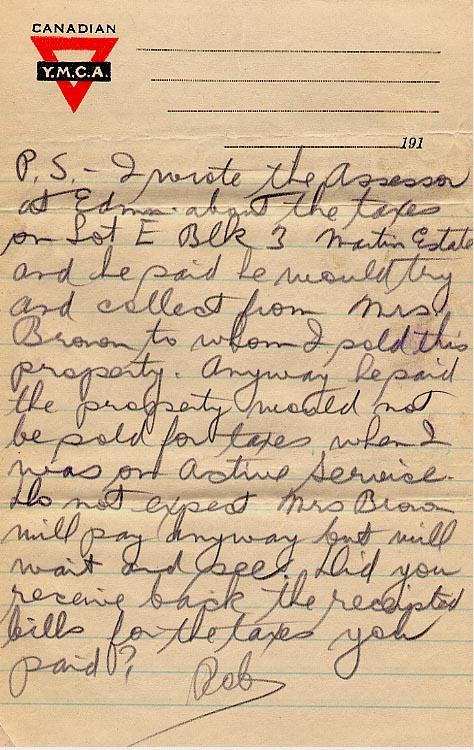 CANADIAN
Y.M.C.A.
191
P.S. - I wrote the Assessor
at Edmn. about the taxes
on Lot E Blk 3 Martin Estate
and he said he would try
and collect from Mrs.
Brown to whom I sold this
property. Anyway he said
the property would not
be sold for taxes when I
was on Active Service.
Do not expect Mrs Brown
will pay anyway but will
wait and see. Did you
receive back the receipted
bills for the taxes you
paid?
Rob